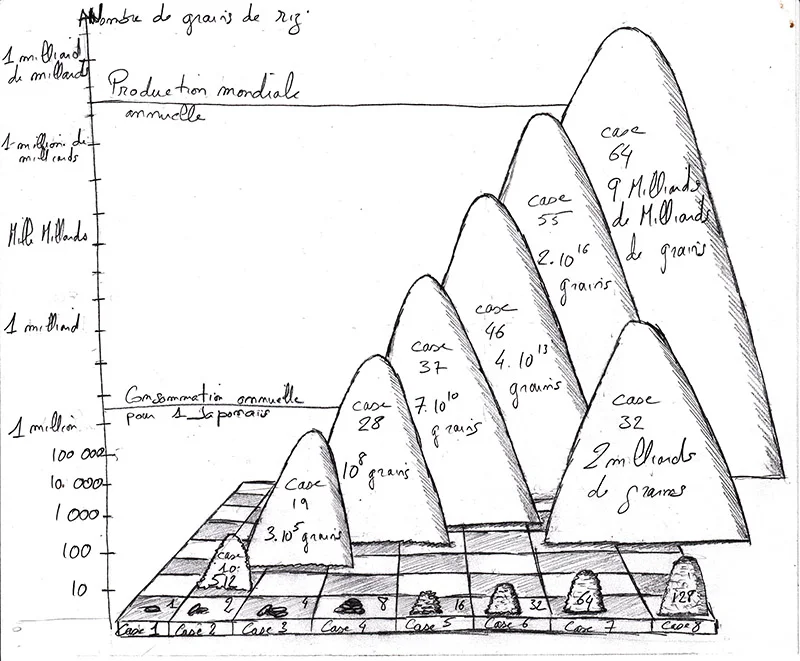 Nombre de grains de riz
1 milliard
de milliards
Production mondiale
annuelle
1 million de
milliards
Mille Milliards
1 milliard
Consommation annuelle
pour 1 Japonais
1 million
100 000
10.000
1 000
100
10
case
64
9 Milliards
de Milliards
de grains
case
55
2.10^16
grains
case
46
4.10^13
grains
case
37
7.10^10
grains
case
28
10^8 grains
Case
19
3.10^5 grains
case
10:
512
case
32
2 milliards
de grains
1
2
4
8
16
32
64
128
Case 1
Case 2
Case 3
Case 4
Case 5
Case 6
Case 7
Case 8